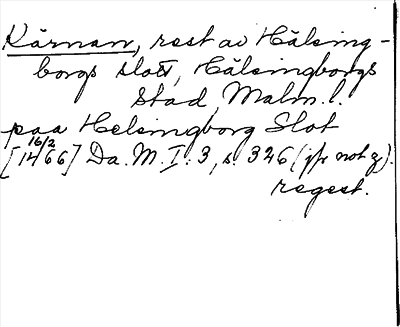 Kärnan, rest av Hälsing-
borgs slott, Hälsingborgs
stad, Malm. l.
paa Helsingborg Slot
16/2
[1466] Da. M. I: 3, s. 326 (jfr not g).
regest.